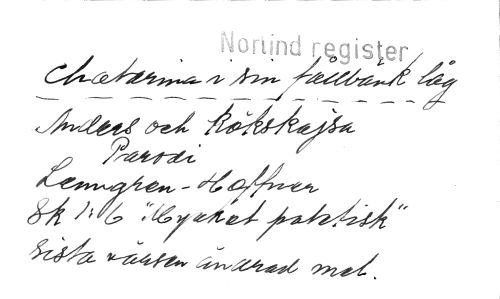 Norlind register
Chatarina i sin fållbänk låg
Anders och Kökskajsa
Parodi
Lenngren - Haffner
Sk 1:6 "Mycket patetisk"
Sista versen ändrad mel.